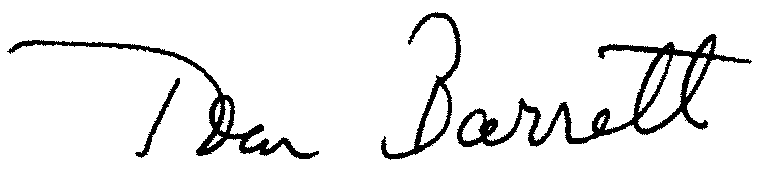 Dean Barrett